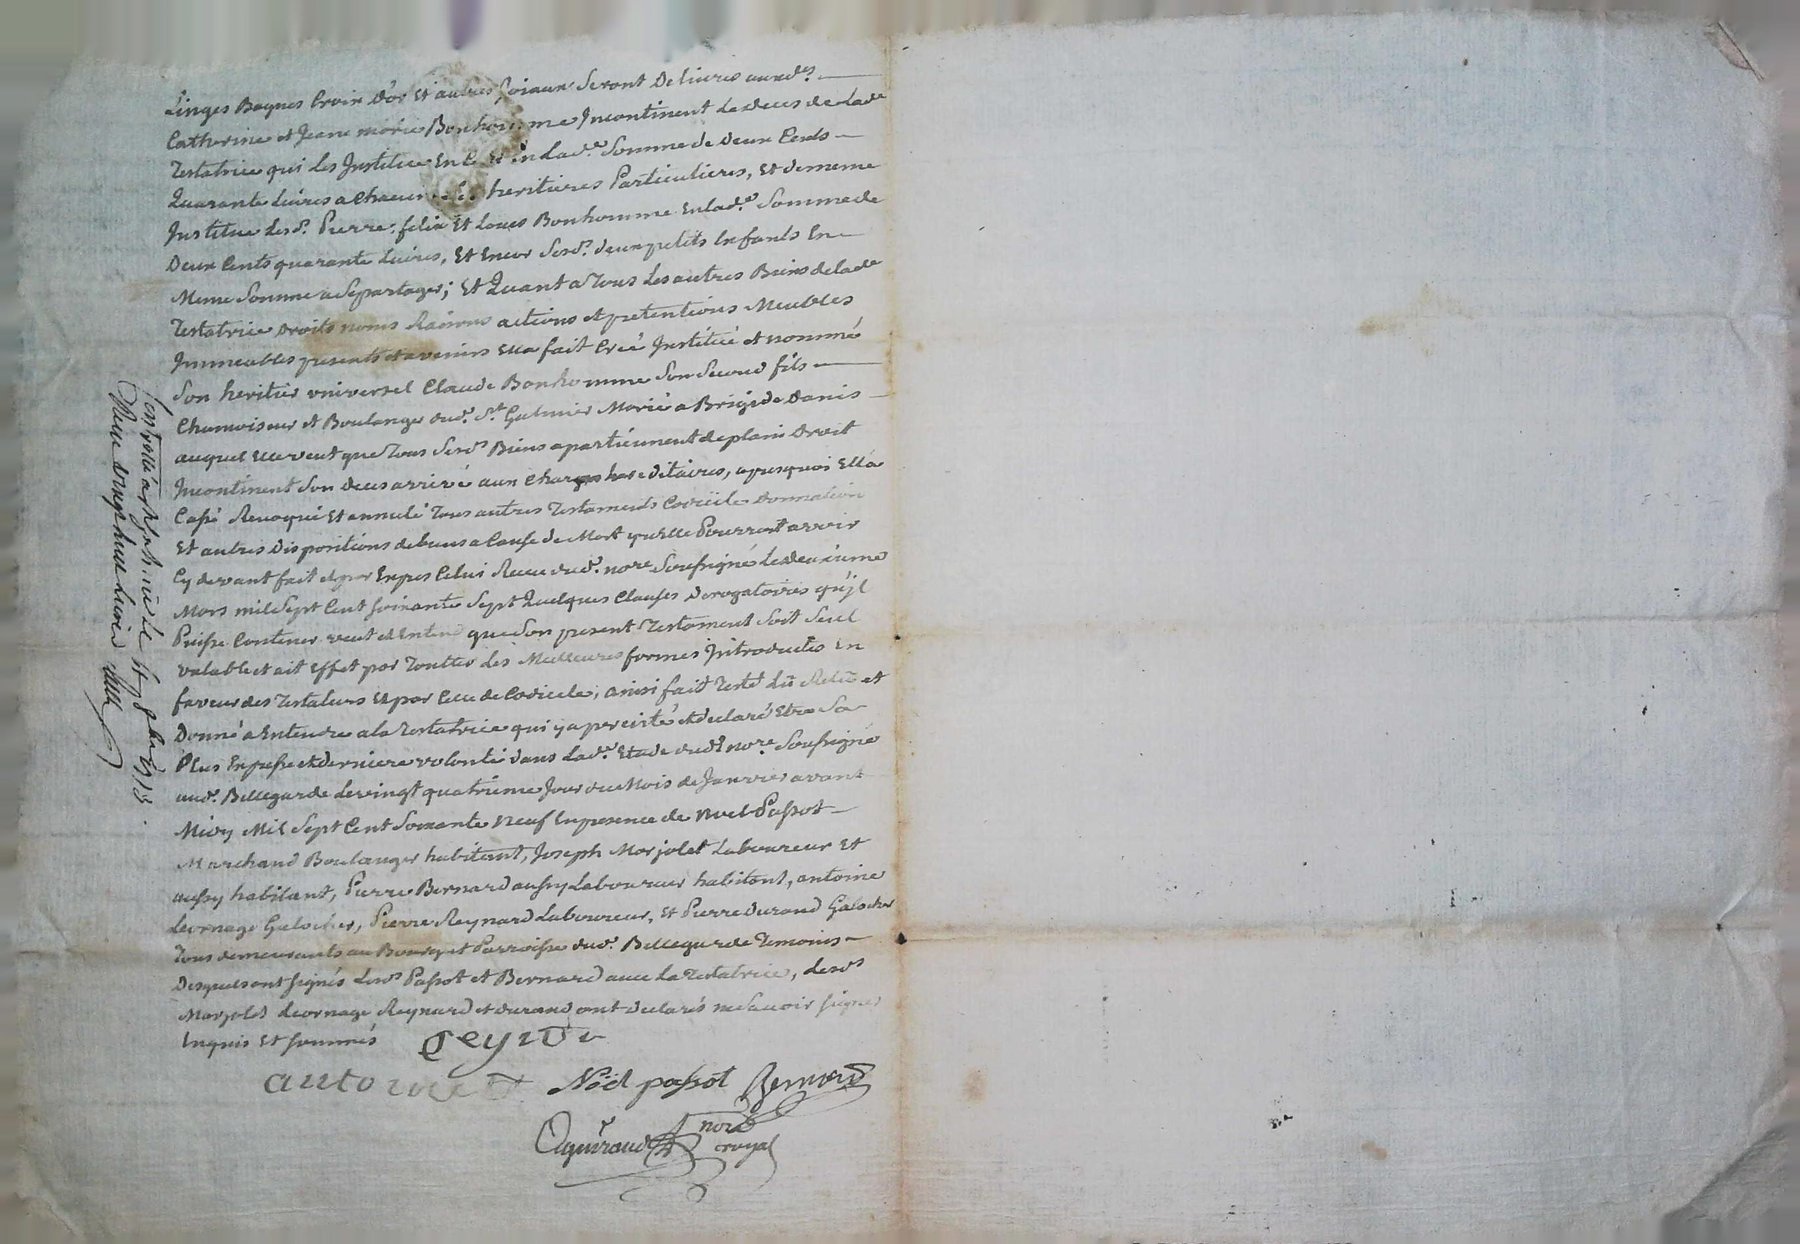 Linges Bagues Croix D'or Et autres Joiaux Seront Delivrés auxd.es
Catherine et Jeane marie Bonhomme Incontinent Le deces de Lade
Testatrice qui Les Institue En Et En Lad.e Somme de Deux Cents
Quarante Livres a Chacune heritieres Particulieres, Et de meme
Institue Lesd.s Pierre, felix Et Louis Bonhomme En lad.e Somme de
Deux Cents quarante Livres, Et Encor Sesd.s deux petits Enfants En
Meme Somme a Se partager; Et Quant a Tous Les autres Biens de lade
Testatrice Droits noms Raisons actions et pretentions Meubles
Immeubles presents et avenirs Ella fait Creé Institué et nommé
Son heritier universel Claude Bonhomme Son Second fils
Chamoiseur et Boulanger dud.t S.t Galmier Marié a Brigide Danis
auquel elle veut que Tous Sesd.s Biens apartiennent de plain Droit
Incontinent Son deces arrivé aux Charges hereditaires, apres quoi Ella
Cassé Revoqué Et annulé Tous autres Testaments Codicile Donnation
Et autres Dispositions de biens a Cause de Mort qu'Elle Pourroit avoir
Cy devant fait et par Expres Celui Receu dud.t nore Soussigné Le deuxieme
Mars mil Sept Cent soixante Sept Quelques Clauses Derogatoires qu'il
Puisse Contenir veut et Entend que Son present Testament Soit Seul
valable et ait Effet par Toutes Les Meilleures formes Introduites En
faveur des Testateurs Et par Celle de Codicile; ainsi fait Testé Lu Relu et
Donné a Entendre a la Testatrice qui y a percisté et declaré Etre Sa
Plus Expresse et derniere volonté dans Lad.e Etude dud.t nore Soussigné
aud.t Bellegarde Le vingt quatrieme Jour du Mois de Janvier avant
Midy Mil Sept Cent Soixante Neuf En presence de Noel Passot
Marchand Boulanger habitant, Joseph Marjolet Laboureur Et
aussy habitant, Pierre Bernard aussy Laboureur habitant, antoine
Leornage Galocher, Pierre Reynard Laboureur, Et Pierre Durand Galocher
Tous demeurants au Bourg et Parroisse dud.t Bellegarde Temoins
Desquels ont signés Lesd.s Passot et Bernard avec la Testatrice, Lesd.s
Marjolet Leornage Reynard et Durand ont declarés ne Savoir signer
Enquis Et sommés
Noël passot Bernard
nore
royal